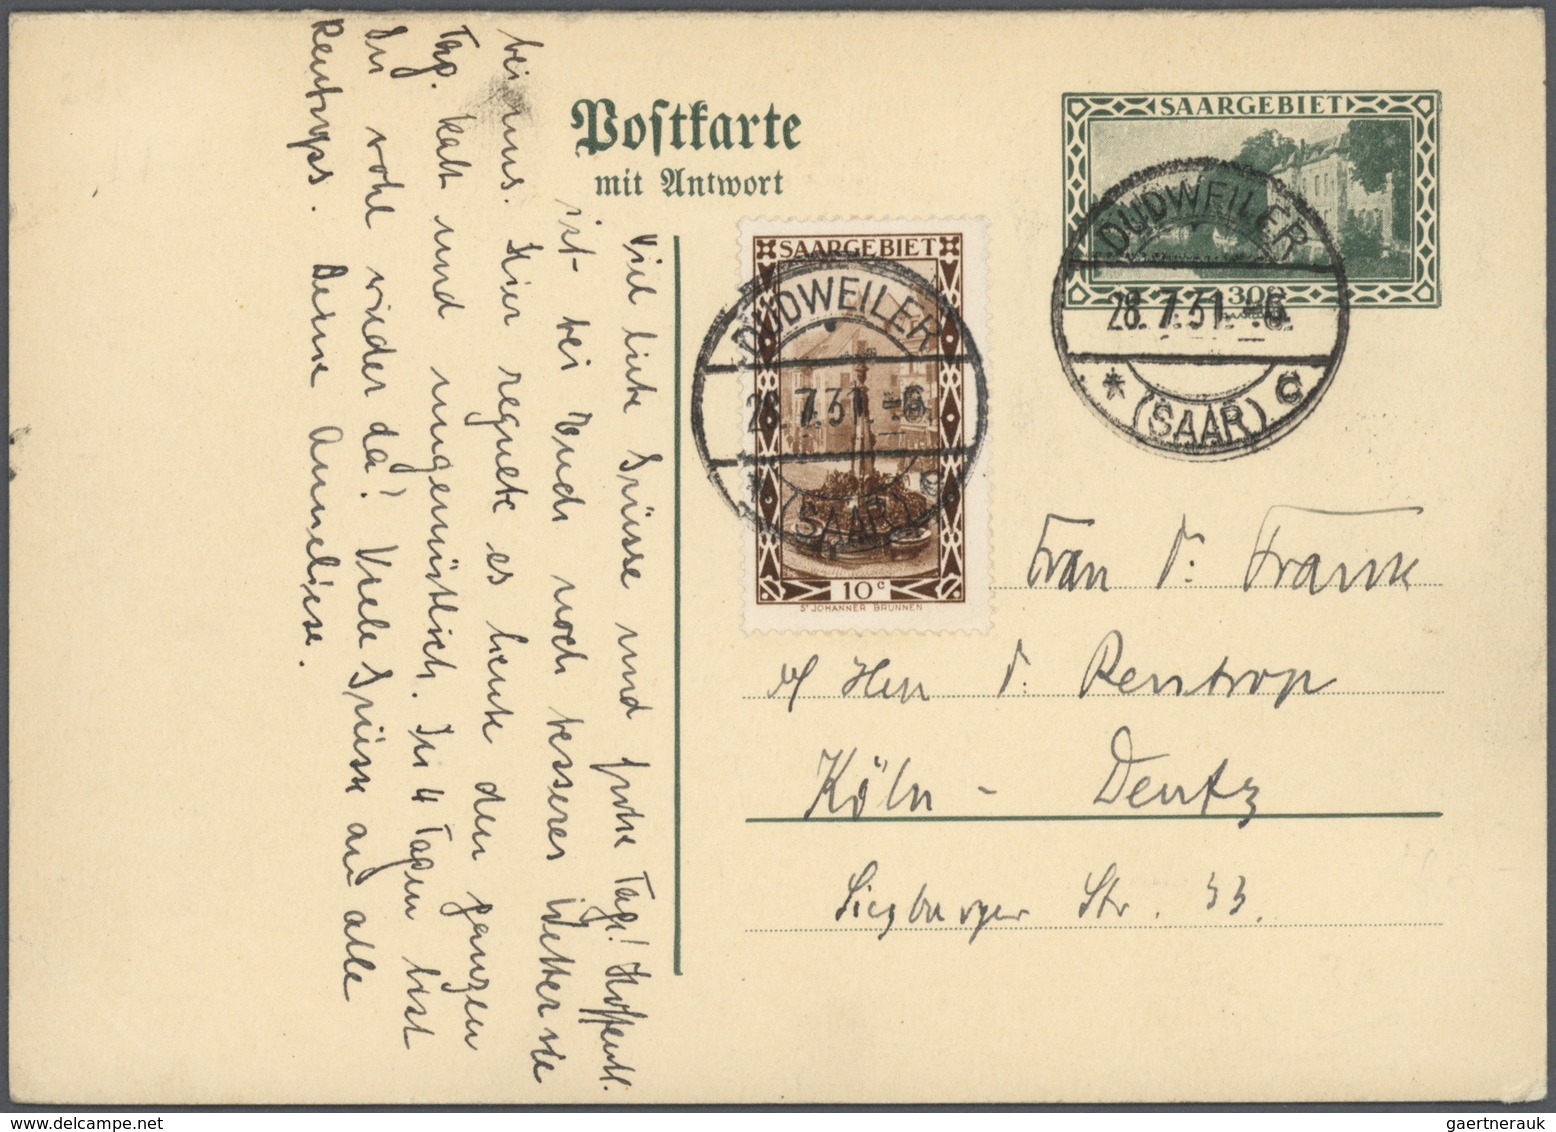 Postkarte
mit Antwort
SAARGEBIET
30c
DUDWEILER
28.7.31.-6
* (SAAR) c
SAARGEBIET
10c
ST JOHANNER BRUNNEN
DUDWEILER
28.7.31.-6
* (SAAR) c
Viel liebe Grüsse und frohe Tage! Hoffentl.
ist bei Euch noch besseres Wetter wie
bei uns. Hier regnete es heute den ganzen
Tag. kalt und ungemütlich. In 4 Tagen bist
Du wohl wieder da? Viele Grüsse an alle
Rentrops. Deine Anneliese.
Frau Dr. Frank
b/ Herrn Dr. Rentrop
Köln - Deutz
Siegburger Str. 33.
gaertnerauk @ delcampe.net